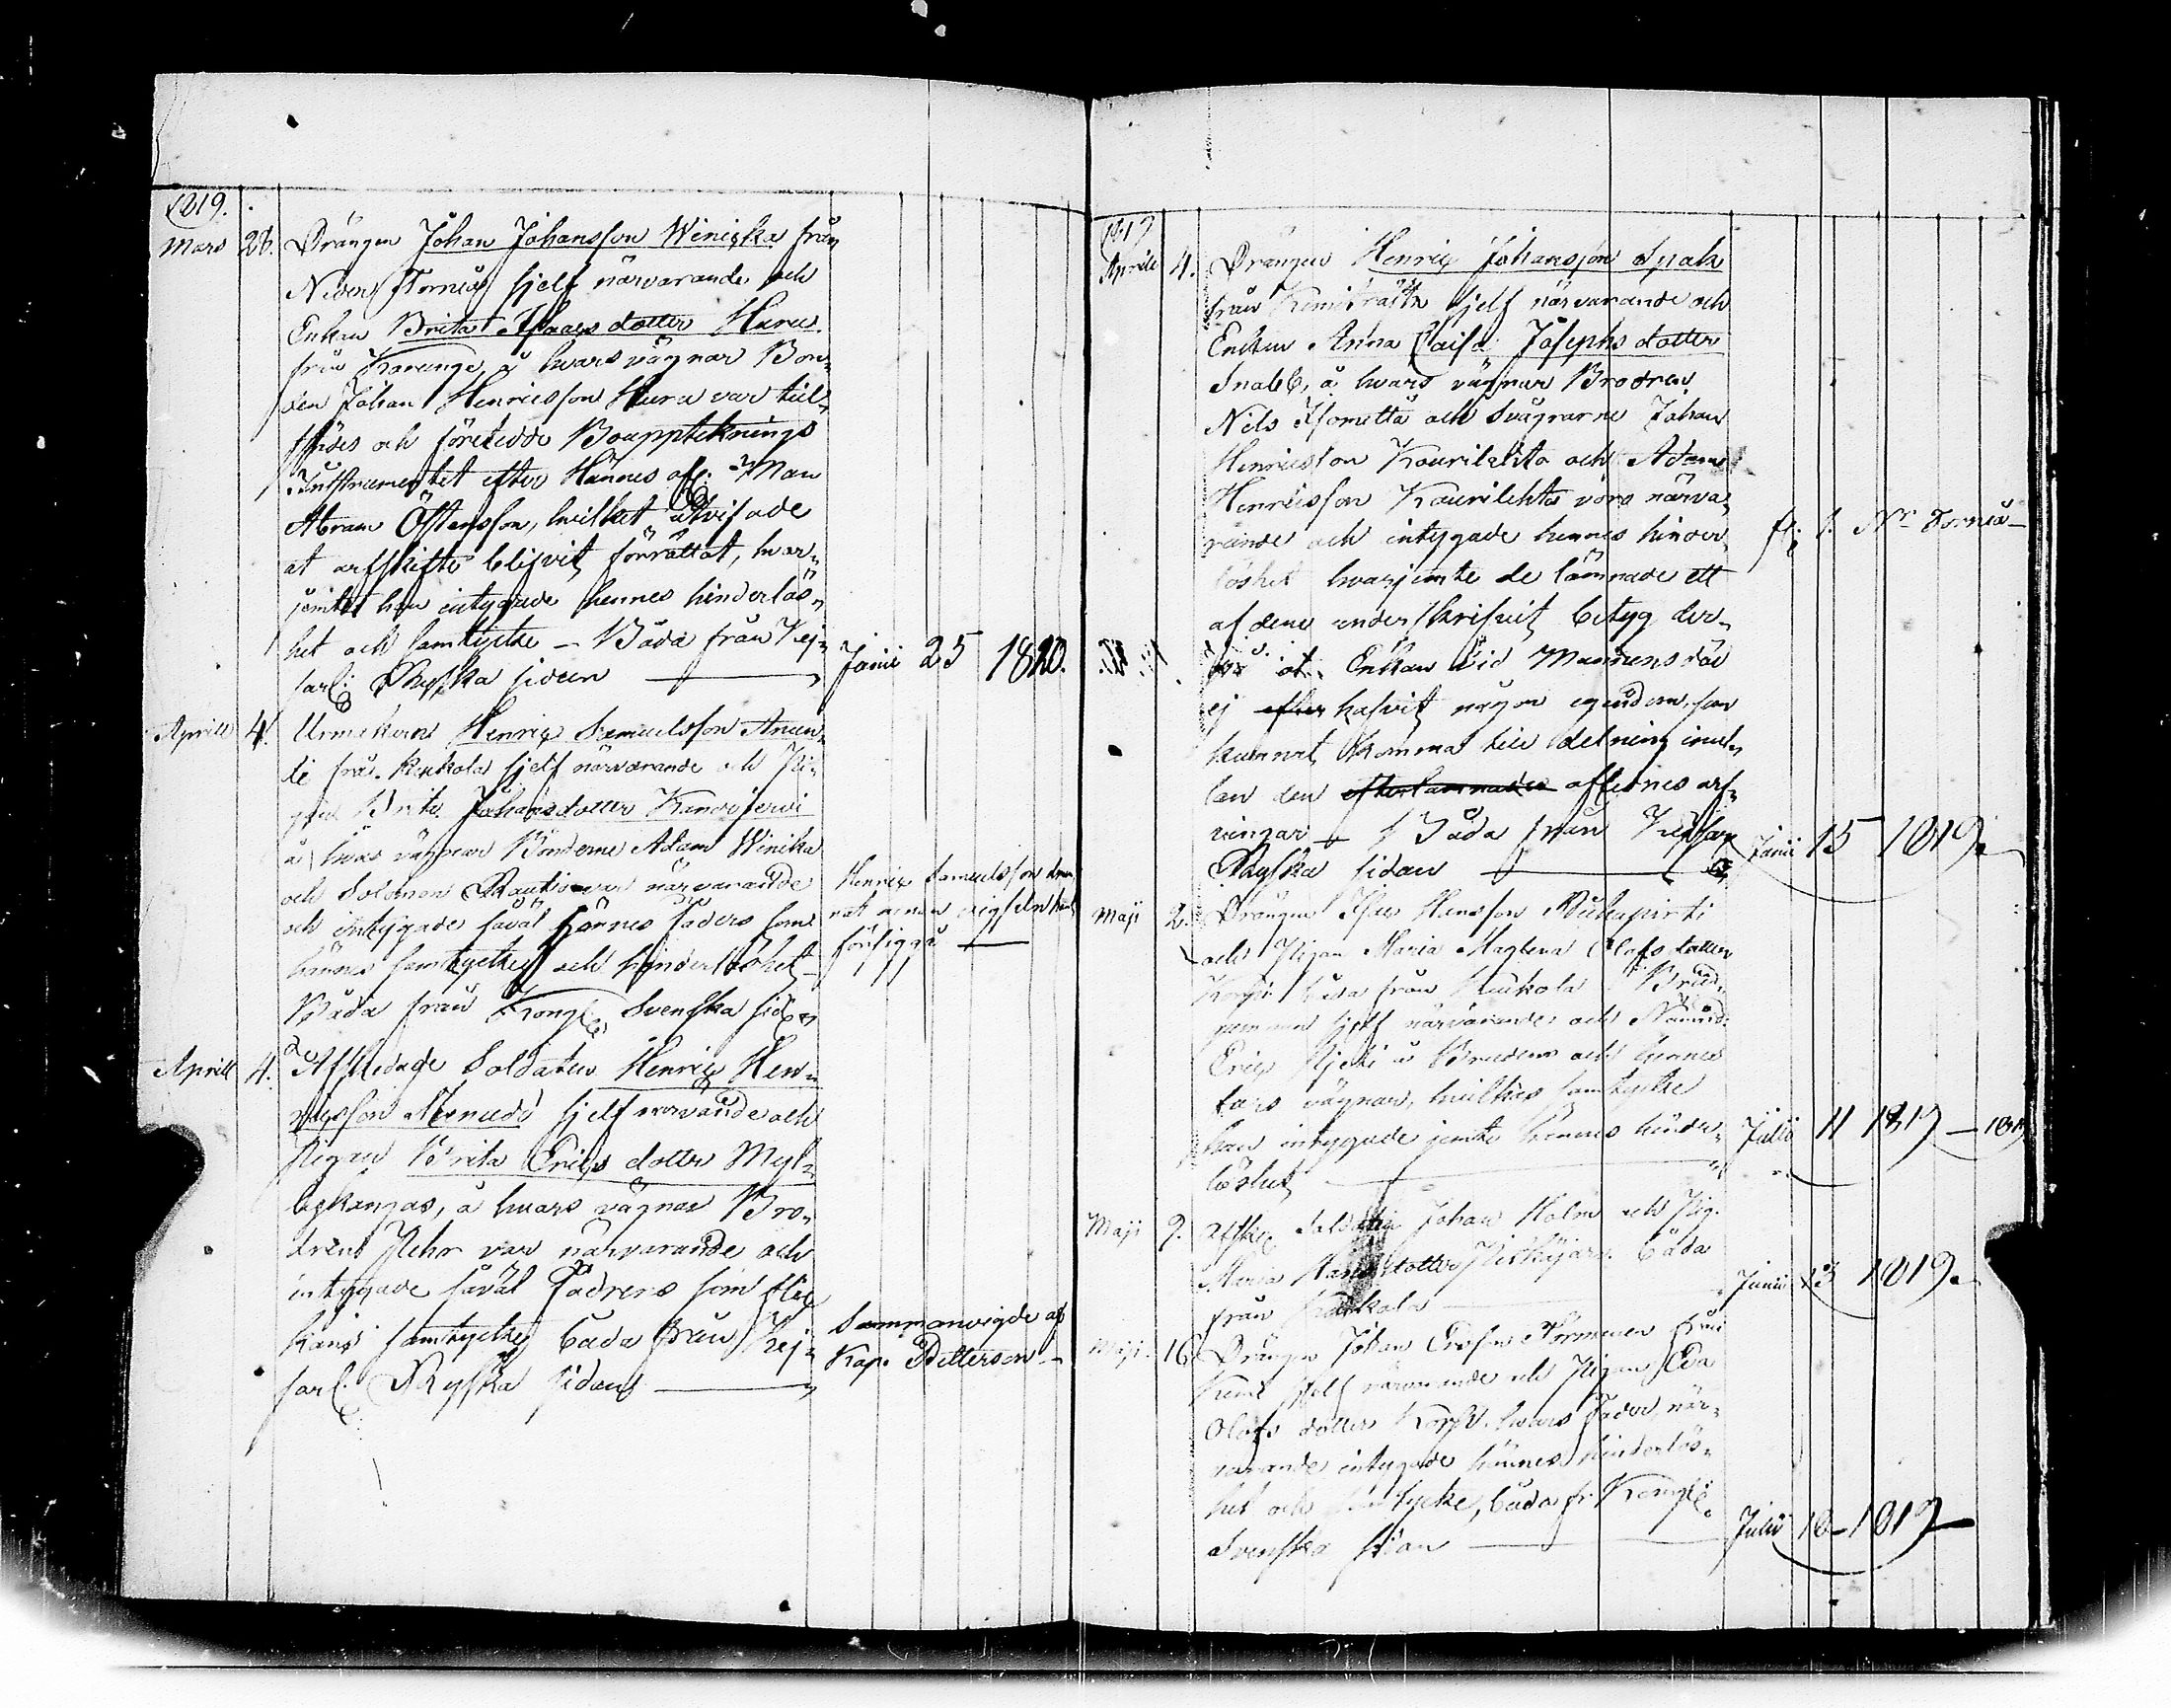 1819.
Mars 28. Drängen Johan Johansson Winicka från
Neder Torneå sjelf närvarande och
Enkan Brita Isaacs dotter Hura
från Karunge, å hvars vägnar Bon-
den Johan Henricsson Hura var till
städes och företedde Bouppteknings
Instrumentet efter Hännes afl: Man
Abram Östensson, hvilket utvisade
at arfskifte blifvit förrättat, hvar-
jemte han intygade hennes hinderlös-
het och samtycke — Båda från Kej-
sarl: Ryska sidan — Junii 25 1820.
Aprill 4. Urmakaren Henric Samuelsson Anun-
di från Kukola sjelf närvarande och Pi-
gan Brita Johansdotter
å hvars vägnar Bönderne Adam Winika
och Salomon Rautio var närvarande
och intygade såväl hännes faders som
hännes samtycke och hinderlöshet
Båda från Kongl: Svenska sidan
Henric Samuelsson
försiggå —
Aprill 4. Afskedade Soldaten Henric Hen-
ricsson sjelf närvarande och
Pigan Brita Erics dotter Myl-
lykangas, å hvars vägnar Bro-
dren Pehr var närvarande och
intygade såväl Fadrens som flic-
kans samtycke, båda från Kej-
sarl: Ryska sidan —
Sammanvigde af
Kap. Pettersson —
1819
Aprill 4. Drängen Henric Johansson Spak
från Kemiträsk sjelf närvarande och
Enkan Anna Caisa Josephs dotter
å hvars vägnar Brodren
Nils Isometsä och Svågrarne Johan
Henricsson Kaurilehto och Adam
Henricsson Kaurilehto voro närva-
rande och intygade hennes hinder-
löshet hvarjemte de lämnade ett
af dem underskrifvit betyg der-
at Enkan vid Mannens död
ej efter hafvit någon egendom, som
kunnat komma till delning imel-
lan den efterlämnades aflednes arf-
vingar — Båda från Kejsarl.
Ryska sidan — Junii 15 1819.
fl: t. Nr Torneå —
Maji 2. Drängen Isac Hansson Ruhapirti
och Pigan Maria Magdlena Olofs dotter
Korpi båda från Kukola Brud-
gummen sjelf närvarande och Nämnd.
Eric å Brudens och hennes
fars vägnar, hvilkas samtycke
han intygade jemte hennes hinder-
löshet — Julii 11 1819 — 1819
Maji 9. Afsked Soldaten Johan Holm och Pig.
Maria Hansdotter båda
från Kukkola — Junii 13 1819.
Maji 16. Drängen Johan Ersson från
Kemi sjelf närvarande och Pigan Eva
Olofs dotter Korpi. hvars Fader när-
varande intygade hännes hinderlös-
het och samtycke, båda fr. Kongl:
Svenska sidan — Julii 16 1819 —